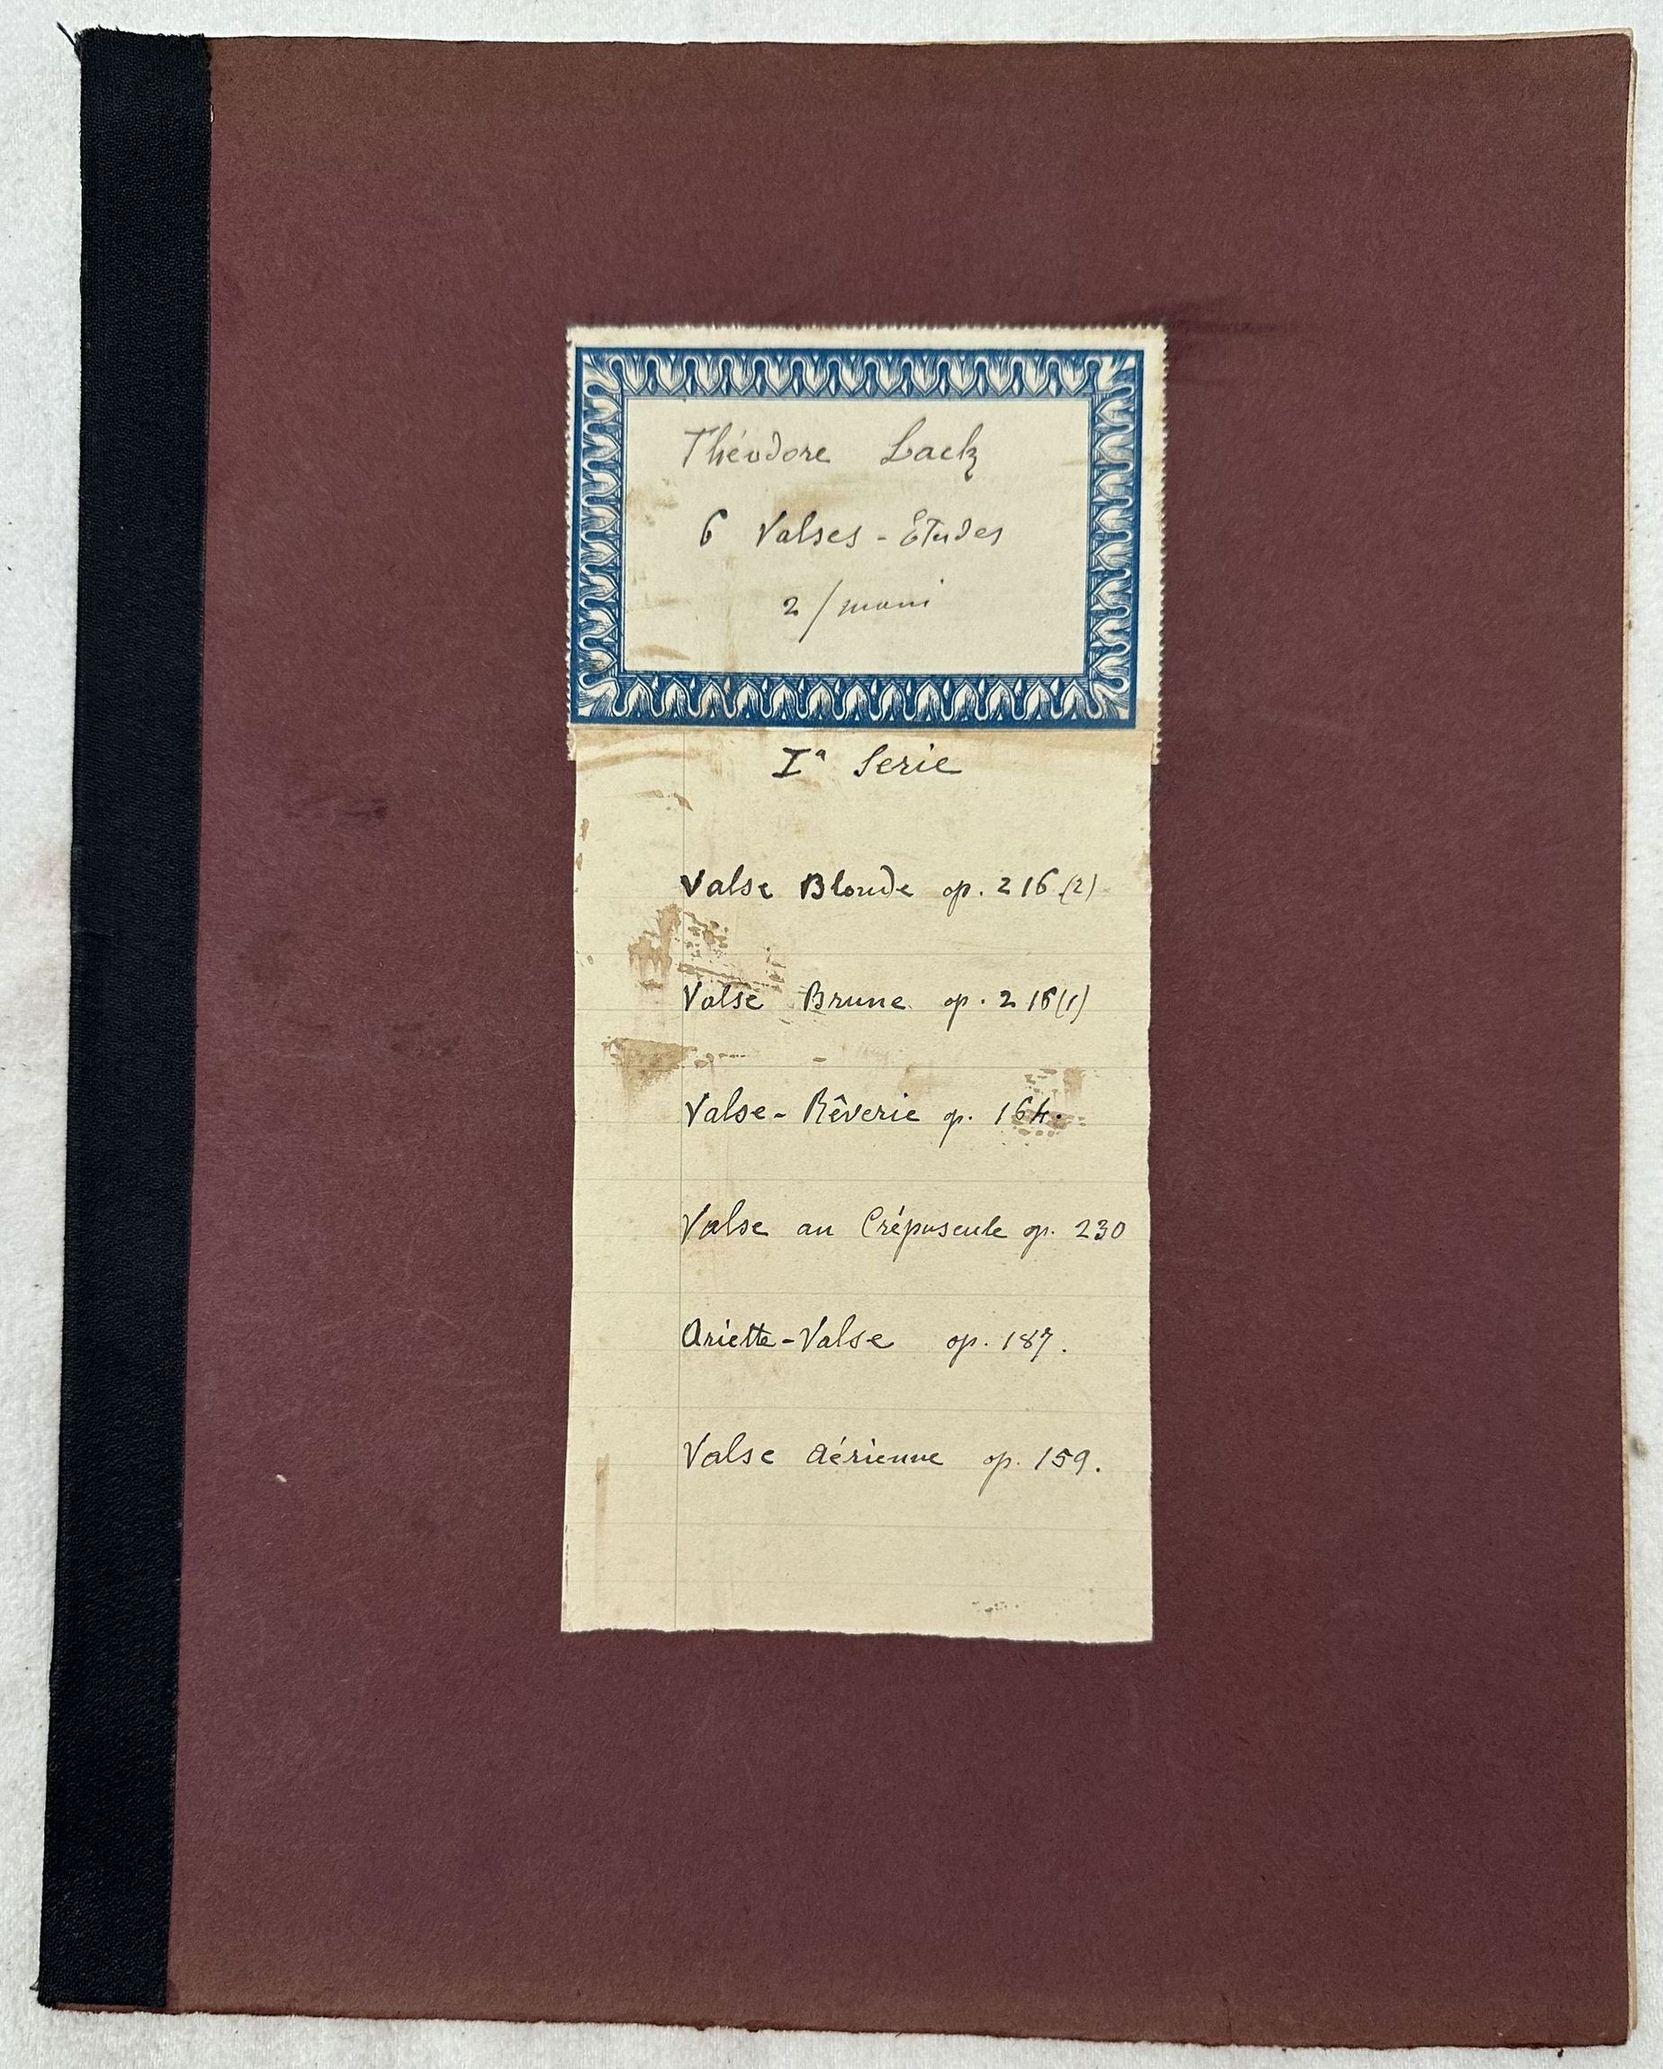 Théodore Lack
6 Valses - Etudes
2/mani
Iª Serie
Valse Blonde op. 216 (2)
Valse Brune op. 216 (1)
Valse - Rêverie op. 164.
Valse au Crépuscule op. 230
Ariette - Valse op. 187.
Valse Aérienne op. 159.